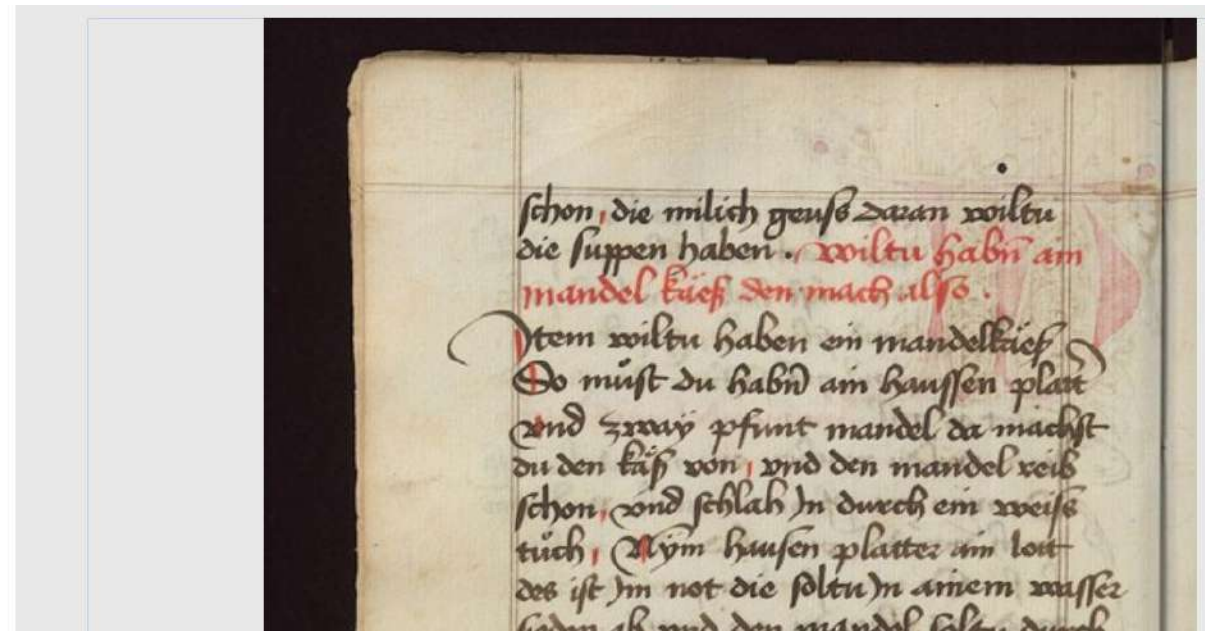 schon, die milich geuss daran wiltu
die suppen haben. wiltu habn̄ ain
mandel käeß den mach also.
Item wiltu haben ein mandelkäeß
So můst du habn̄ ain haussen platt̄
vnd zway pfunt mandel da machst
du den käß von, vnd den mandel reib
schon, vnd schlah In durch ein weiss
tůch, Nym hausen platter ain lott
des ist Im not die soltu In ainem wasser
sieden ab vnd den mandel soltu durch